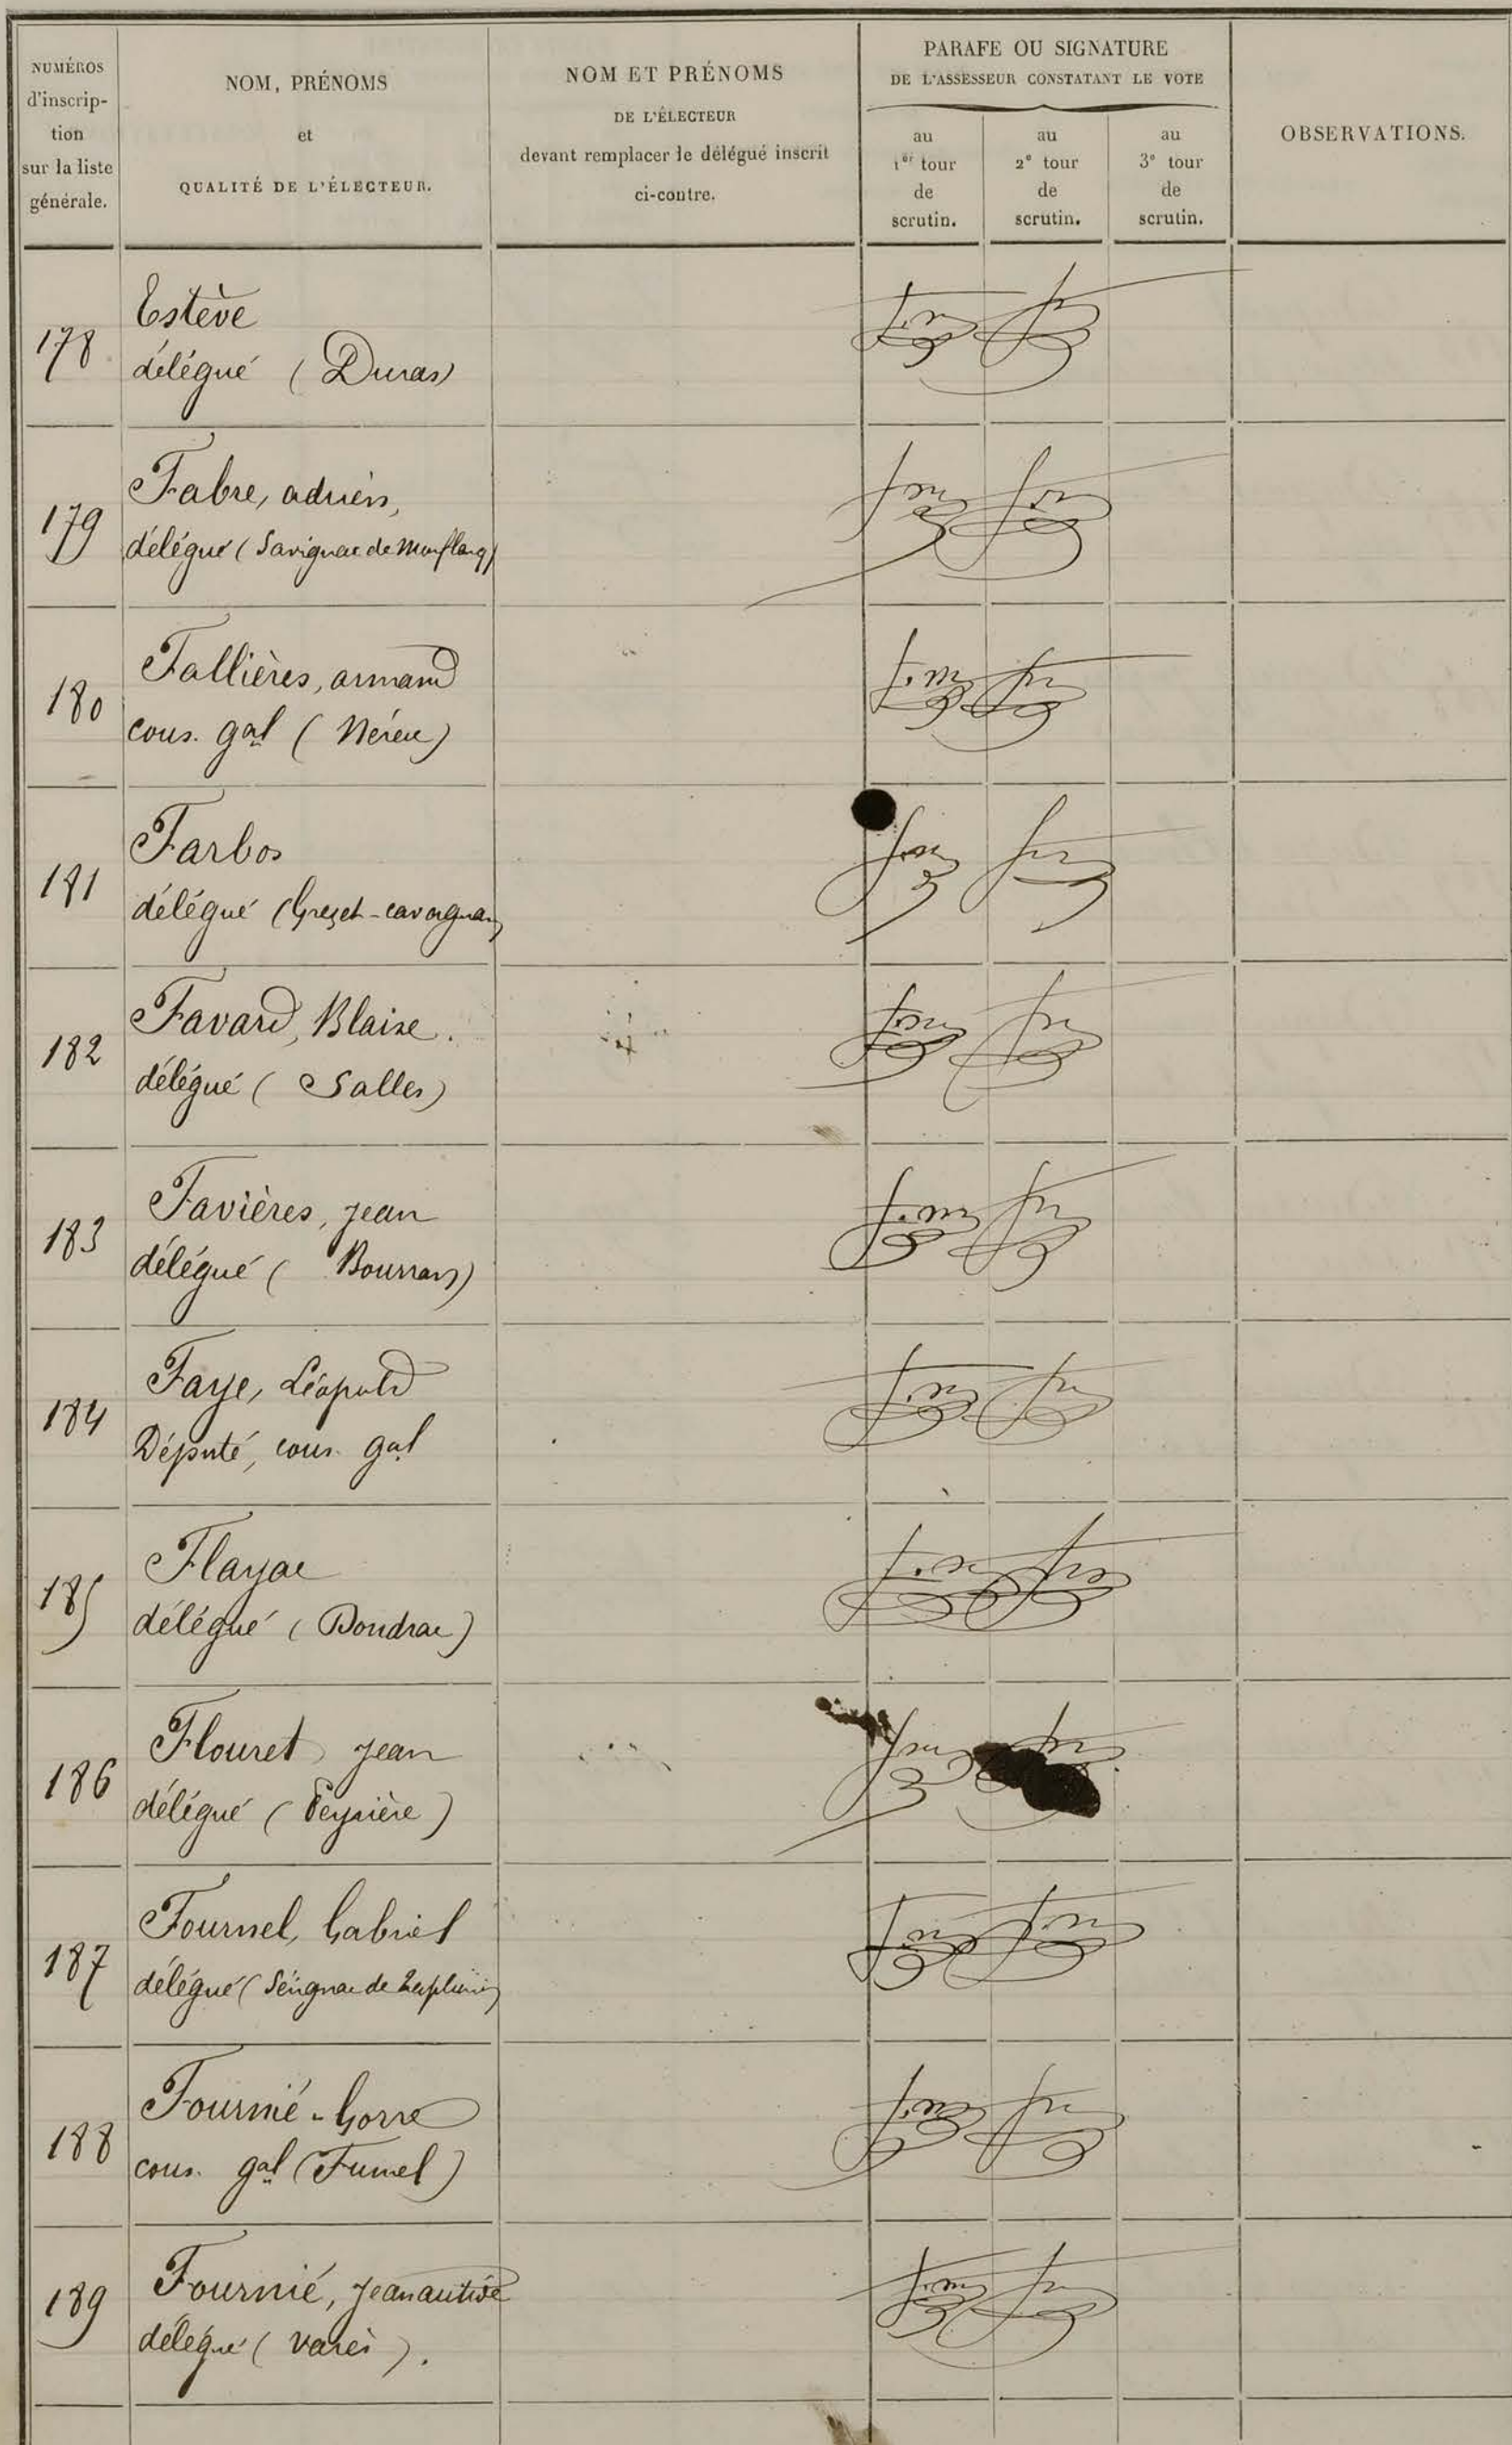 NUMÉROS
d'inscrip-
tion
sur la liste
générale.
NOM, PRÉNOMS
et
QUALITÉ DE L'ÉLECTEUR.
NOM ET PRÉNOMS
DE L'ÉLECTEUR
devant remplacer le délégué inscrit
ci-contre.
PARAFE OU SIGNATURE
DE L'ASSESSEUR CONSTATANT LE VOTE
au
1er tour
de
scrutin.
au
2e tour
de
scrutin.
au
3e tour
de
scrutin.
OBSERVATIONS.
178
Estève
délégué (Duras)
179
Fabre, adrien,
délégué (Savignac de Monflanq)
180
Fallières, armand
cons. gal (Nérac)
181
Farbos
délégué (Grezet-cavagnan)
182
Favard, Blaise.
délégué (Salles)
183
Favières, jean
délégué (Bourran)
184
Faye, Léopold
Député, cons. gal
185
Flayac
délégué (Doudrac)
186
Flouret, jean
délégué (Peyrière)
187
Fournel, Gabriel
délégué (Sérignac de
188
Fournié-Gorre
cons. gal (Fumel)
189
Fournié, jean
délégué (Varès).